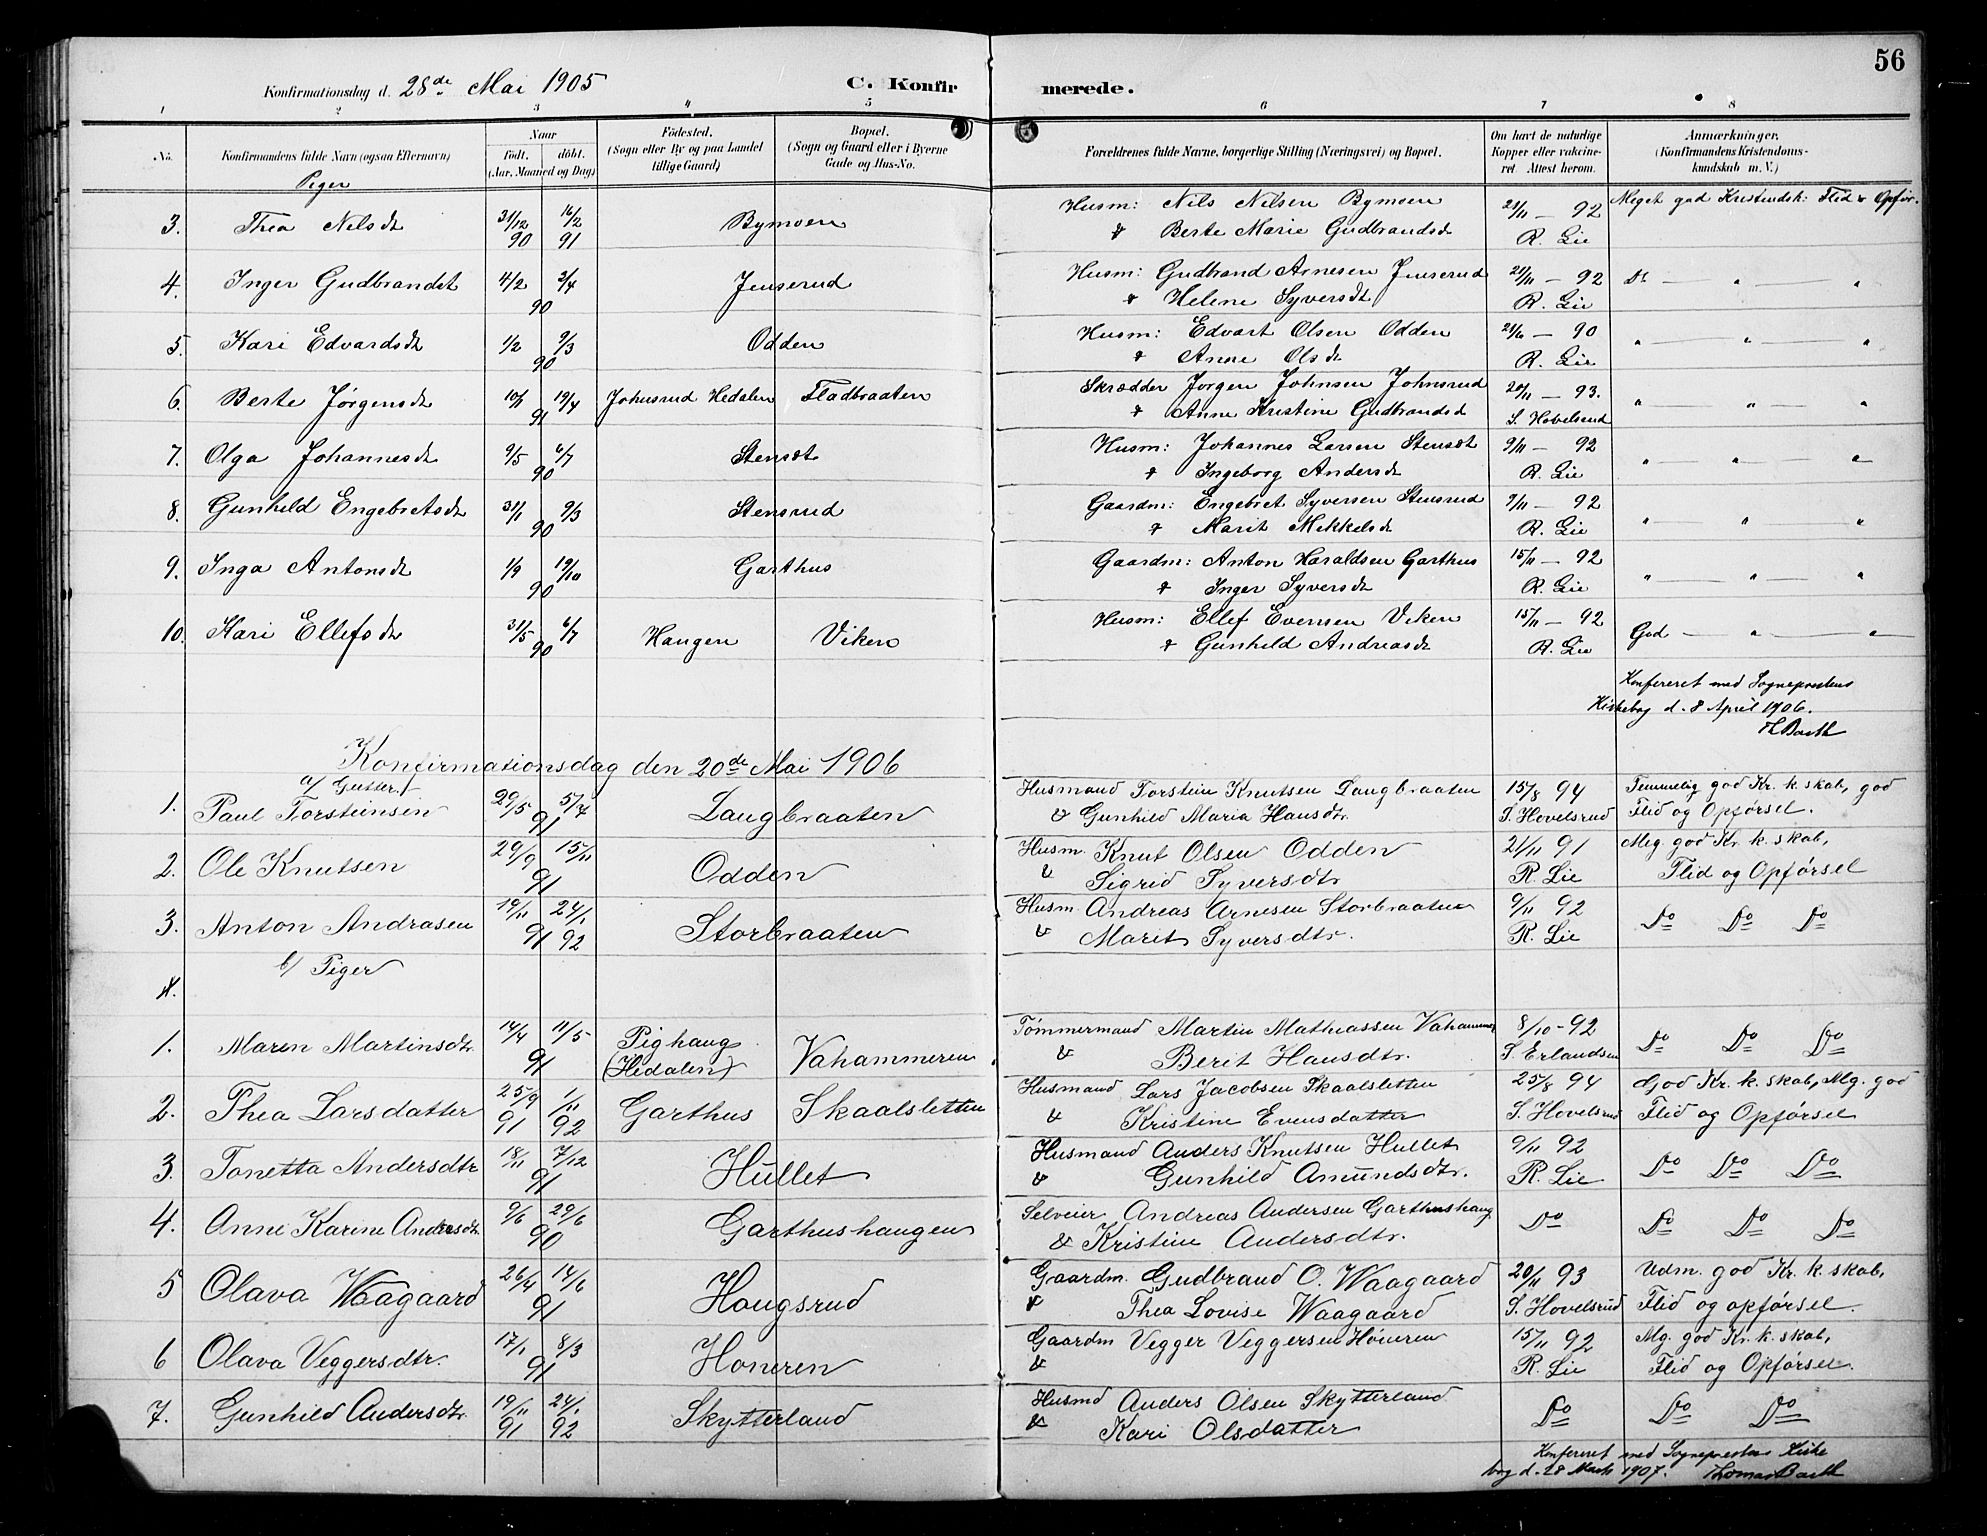 56
Konfirmationsdag d. 28de Mai 1905 C. Konfir merede.
1 2 3 4 5 6 7 8
No. Konfirmandens fulde Navn (ogsaa Efternavn) Naar födt. döbt. (Aar, Maaned og Dag) Födested. (Sogn eller By og paa Landet tillige Gaard) Bopæl. (Sogn og Gaard eller i Byerne Gade og Hus-No. Forældrenes fulde Navne, borgerlige Stilling (Næringsvei) og Bopæl. Om havt de naturlige Kopper eller vakcineret Attest herom. Anmærkninger. (Konfirmandens Kristendomskundskab m. V.)
Piger
3. Thea Nilsdt 31/12 90 16/2 91 Bymoen Husm: Nils Nilsen Bymoen 21/11 — 92 Meget god Kristendsk: Flid & Opfør.
& Berte Marie Gudbrandsdt R. Lie
4. Inger Gudbrandst 4/2 2/4 90 Jenserud Husm: Gudbrand Arnesen Jenserud 21/11 — 92 Dt — " — "
& Helene Syversdt R. Lie
5. Kari Edvardsdt 1/2 9/3 90 Odden Husm: Edvart Olsen Odden — 90 " — " — "
& Anne Olsdt R. Lie
6. Berte Jørgensdt 10/1 19/4 91 Johnsrud Hedalen Fladbraaten Skrædder Jørgen Johnsen Johnsrud 20/11 — 93. " " — "
& Anne Kristine Gudbrandsd S. Hovelsrud
7. Olga Johannesdt 9/5 6/7 90 Stensæt Husm: Johannes Larsen Stensæt 9/11 — 92 " — " — "
& Ingeborg Andersdt R. Lie
8. Gunhild Engebretsdt 31/1 9/3 90 Stensrud Gaardm: Engebret Syversen Stensrud 9/11 — 92 " " "
& Marit Mikkelsdt R. Lie
9. Inga Antonsdt 1/9 19/10 90 Garthus Gaardm: Anton Haraldsen Garthus 15/11 — 92 " — " — "
& Inger Syversdt R. Lie
10. Kari Ellefsdt 31/5 6/7 90 Haugen Viken Husm: Ellef Evensen Viken 15/11 — 92 God — " — "
& Gunhild Andreasdt R. Lie
Konfereret med Sogneprestens
Kirkebog d. 8 April 1906.
Th Barth
Konfirmationsdag den 20de Mai 1906
a/ Gutter
1. Paul Torsteinsen 29/5 5/7 91 Langbraaten Husmand Torstein Knutsen Langbraaten 15/8 94 Temmelig god Kr. k. skab, god
& Gunhild Maria Hansdtr. S. Hovelsrud Flid og Opførsel.
2. Ole Knutsen 29/9 15/11 91 Odden Husm. Knut Olsen Odden 21/11 91 Meg. god Kr. k. skab,
& Sigrid Syversdtr R. Lie Flid og Opførsel
3. Anton Andrasen 19/11 91 24/1 92 Storbraaten Husm Andreas Arnesen Storbraaten 9/11 92 Do Do Do
& Marit Syversdtr. R. Lie
b/ Piger
1. Maren Martinsdtr. 14/4 11/5 91 Pighaug (Hedalen) Vahammeren Tømmermand Martin Mathiassen Vahammer 8/10 - 92 Do Do Do
& Berit Hansdtr. S. Erlandsen
2. Thea Larsdatter 25/9 91 1/11 92 Garthus Skaalsletten Husmand Lars Jacobsen Skaalsletten 25/8 94 God Kr. k. skab, Mg. god
& Kristine Evensdatter S. Hovelsrud Flid og Opførsel
3. Tonetta Andersdtr 18/11 7/12 91 Hullet Husmand Anders Knutsen Hullet 9/11 92 Do Do Do
& Gunhild Amundsdtr. R. Lie
4. Anne Karine Andersdtr. 9/6 29/6 90 Garthushaugen Selveier Andreas Andersen Garthushaug Do Do Do Do
& Kristine Andersdtr.
5 Olava Waagaard 26/4 14/6 91 Haugsrud Gaardm. Gudbrand O. Waagaard 20/11 93 Udm. god Kr. k. skab,
& Thea Lovise Waagaard S. Hovelsrud Flid og opførsel.
6 Olava Veggersdtr. 17/1 8/3 91 Honeren Gaardm Vegger Veggersen Høneren 15/11 92 Mg. god Kr. k. skab,
& R. Lie Flid og Opførsel.
7. Gunhild Andersdtr 19/11 91 24/1 92 Skytterland Husmd Anders Olsen Skytterland Do Do Do
& Kari Olsdatter
Konfereret med Sogneprestens Kirke
bog d. 28 Marts 1907. Thomas Barth